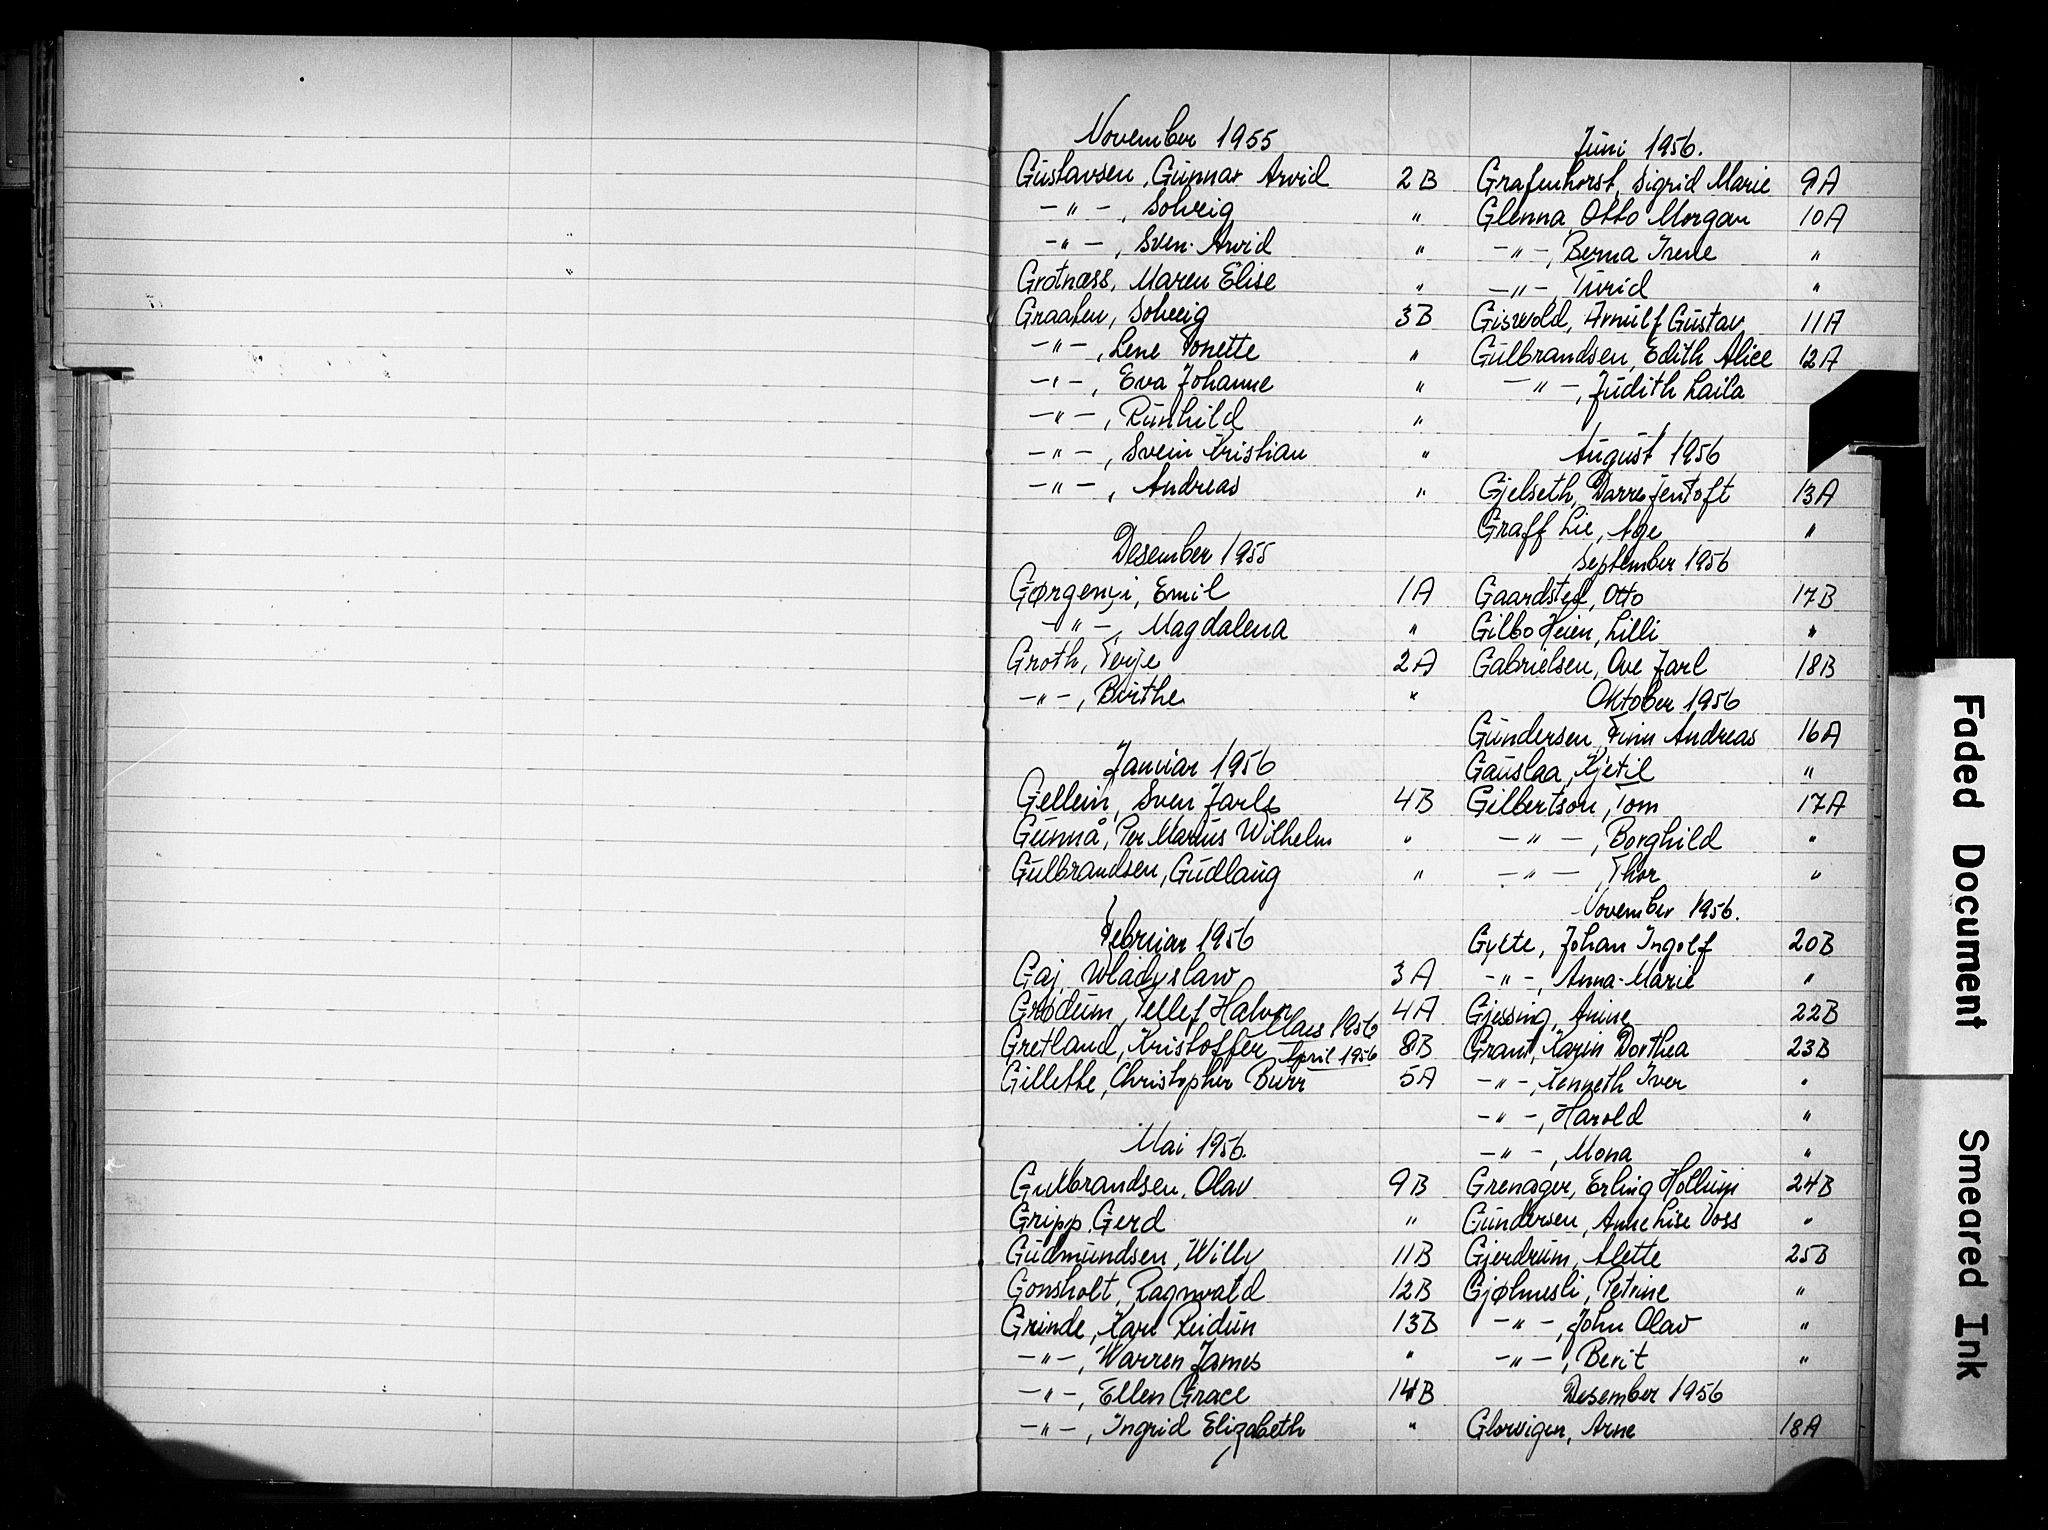 November 1955
Gustavsen, Gunnar Arvid 2B
-"-, Solveig "
-"-, Sven-Arvid "
Grotnæss, Maren Elise "
Graaten, Solveig 3B
-"-, Lene Tonette "
-"-, Eva Johanne "
-"-, Runhild "
-"-, Svein Kristian "
-"-, Andreas "
Desember 1955
Emil 1A
-"-, Magdalena "
Groth, Terje 2A
-"-, Birthe "
Januar 1956
Gellein, Sven Jarle 4B
Gunnå, Per Marius Wilhelm "
Gulbrandsen, Gudlaug "
Februar 1956
Gaj, Wladyslaw 3A
Grødum, Tellef Halvor 4A
Mars 1956
Gretland, Kristoffer 8B
April 1956
Gillette, Christopher Burr 5A
Mai 1956.
Gulbrandsen, Olav 9B
Gripp, Gerd "
Gudmundsen, Willy 11B
Gonsholt, Ragnvald 12B
Grinde, Kare Reidun 13B
-"-, Warren James "
-"-, Ellen Grace 14B
-"-, Ingrid Elizabeth "
Juni 1956.
Grafenhorst, Sigrid Marie 9A
Glenna, Otto Morgan 10A
-"-, Berna Irene "
-"-, Turid "
Giswold, Arnulf Gustav 11A
Gulbrandsen, Edith Alice 12A
-"-, Judith Laila
August 1956
Gjelseth, Jentoft 13A
Graff Lie, Age "
September 1956
Gaardsted, Otto 17B
Gilbo Heien, Lilli "
Gabrielsen, Ove Jarl 18B
Oktober 1956
Gundersen, Finn Andreas 16A
Gauslaa, Kjetil "
Gilbertson, Tom 17A
-"-, Borghild "
-"-, Thor "
November 1956.
Johan Ingolf 20B
-"-, Anna-Marie "
Gjessing, Anine 22B
Grant, Karin Dorthea 23B
-"-, Kenneth Iver "
-"-, Harold "
-"-, Mona "
Grenager, Erling Hollum 24B
Gundersen, Anne Lise Voss "
Gjerdrum, Alette 25B
Gjølmesli, Petrine "
-"-, John Olav "
-"-, Berit "
Desember 1956
Glorvigen, Arne 18A
Faded Document
Smeared Ink